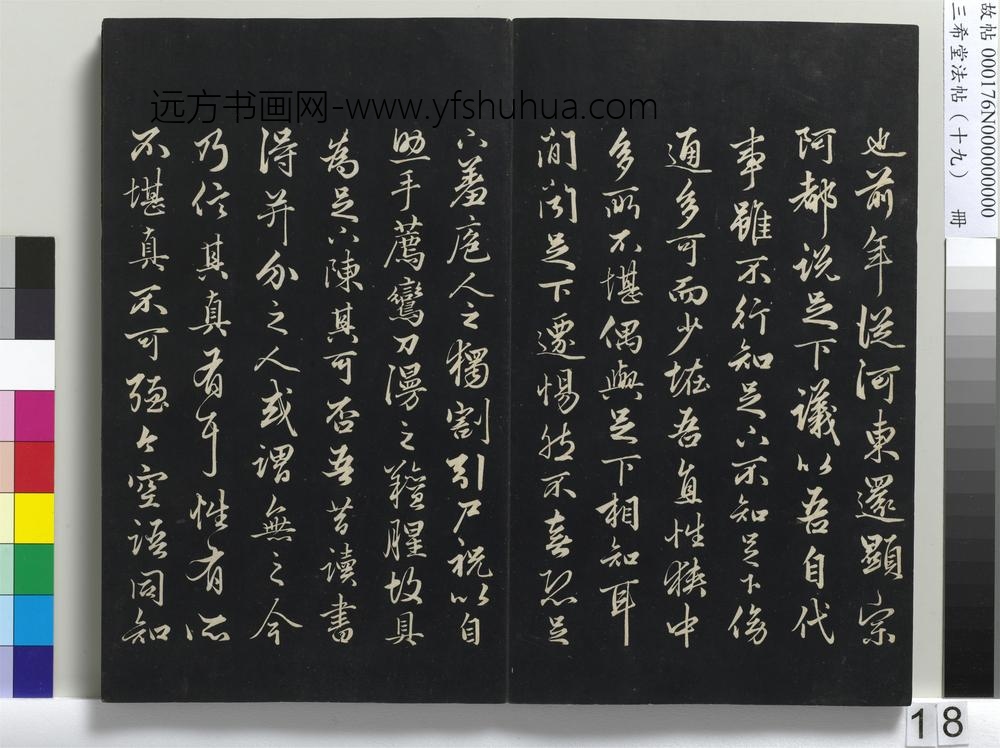 远方书画网-www.yfshuhua.com
也前年從河東還顯宗
阿都說足下議以吾自代
事雖不行知足下不知足下傍
通多可而少怪吾直性狹中
多所不堪偶與足下相知耳
間聞足下遷惕然不喜恐足
下羞庖人之獨割引尸祝以自
助手薦鸞刀漫之羶腥故具
為足下陳其可否吾昔讀書
得并介之人或謂無之今
乃信其真有耳性有所
不堪真不可強今空語同知
故帖 000176N000000000
三希堂法帖（十九） 冊
18